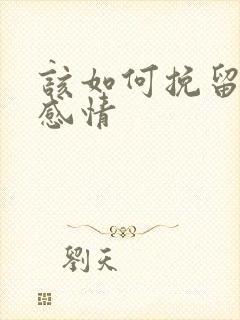 該如何挽留
感情
劉天